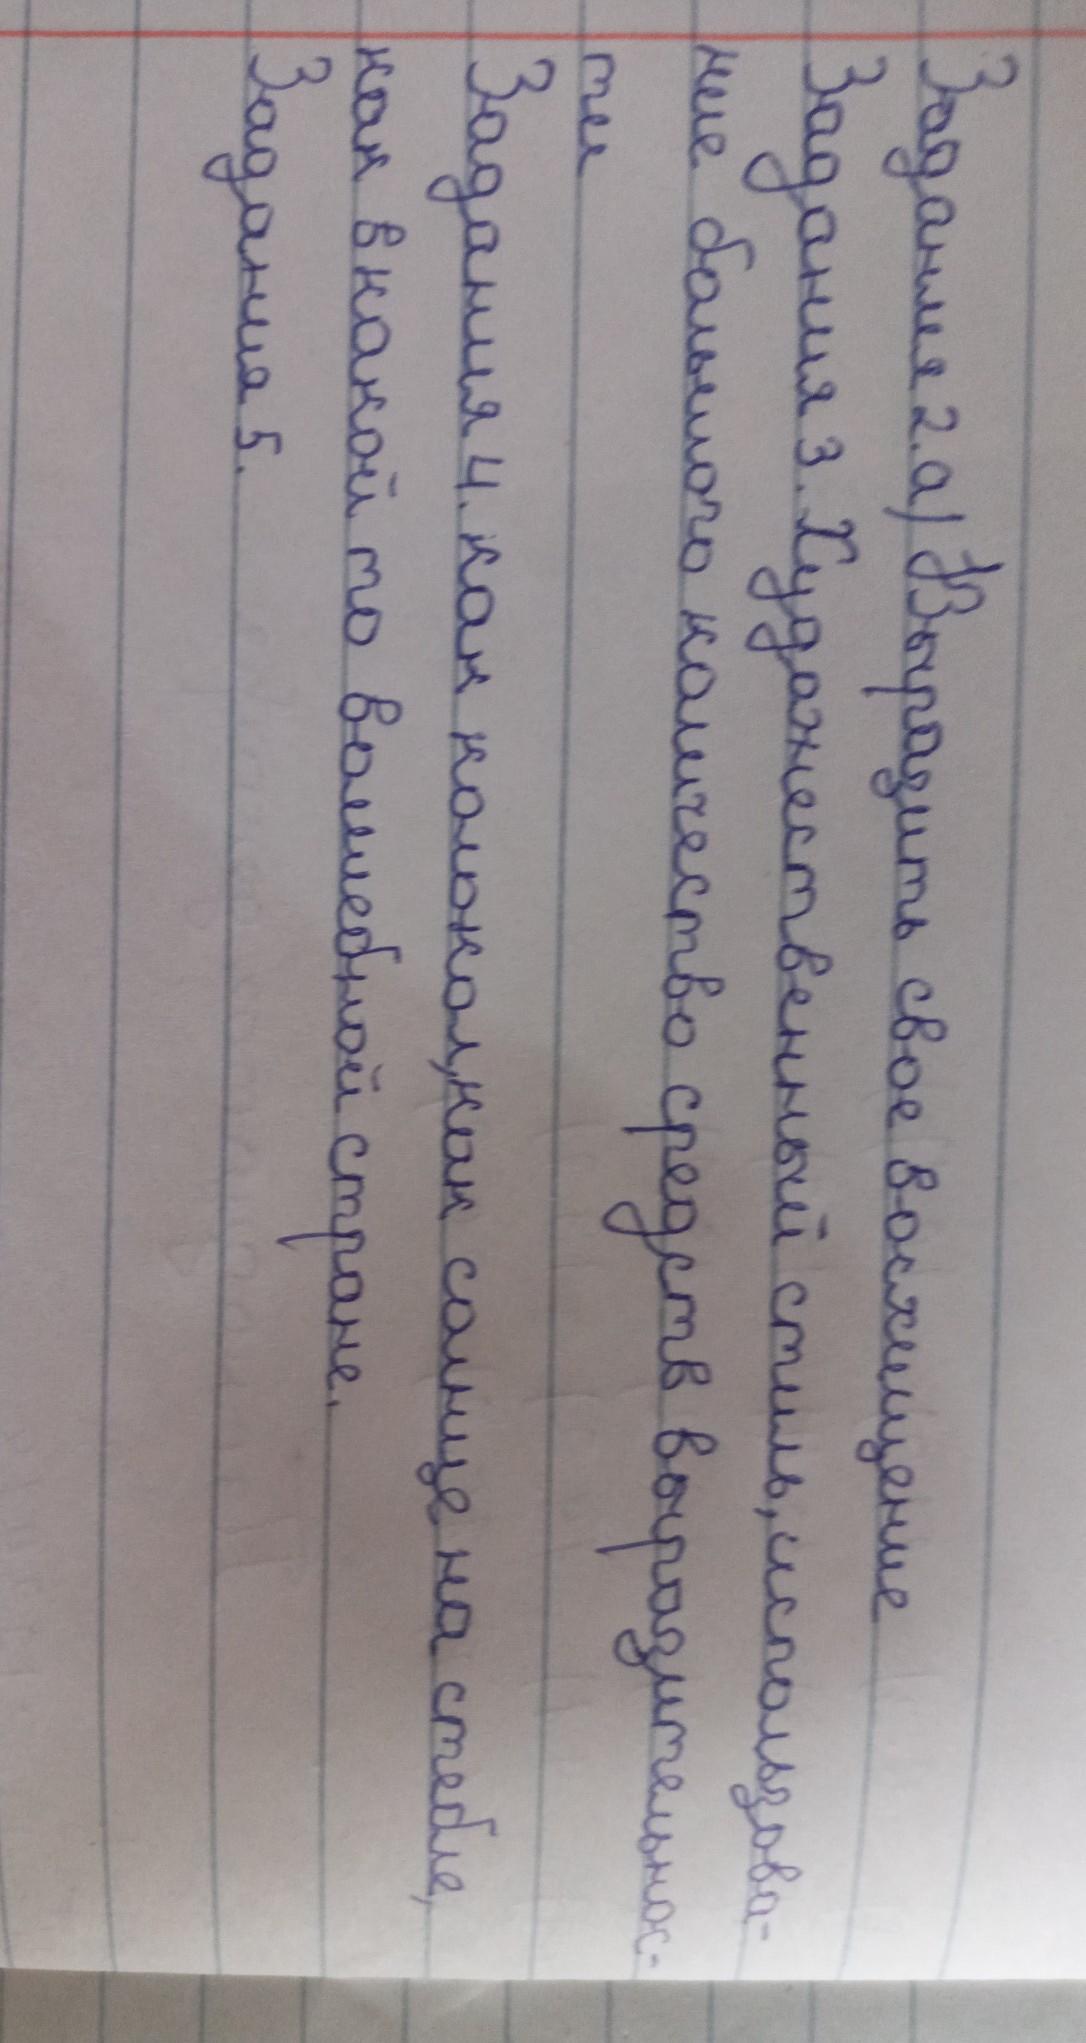 Задание 2. а) Выразить свое восхищение
Задания 3. Художественный стиль, использова-
ние большого количество средств выразительнос-
ти
Задания 4. как колокол, как солнце на стебле,
как в какой то волшебной стране.
Задания 5.